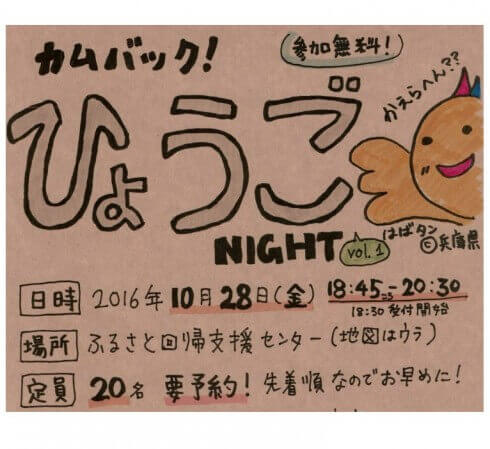 カムバック!
参加無料!
ひょうご
かえらへん??
NIGHT
vol.1
はばタン
©兵庫県
日時 2016年10月28日(金) 18:45-20:30
18:30受付開始
場所 ふるさと回帰支援センター(地図はウラ)
定員 20名 要予約! 先着順なのでお早めに!